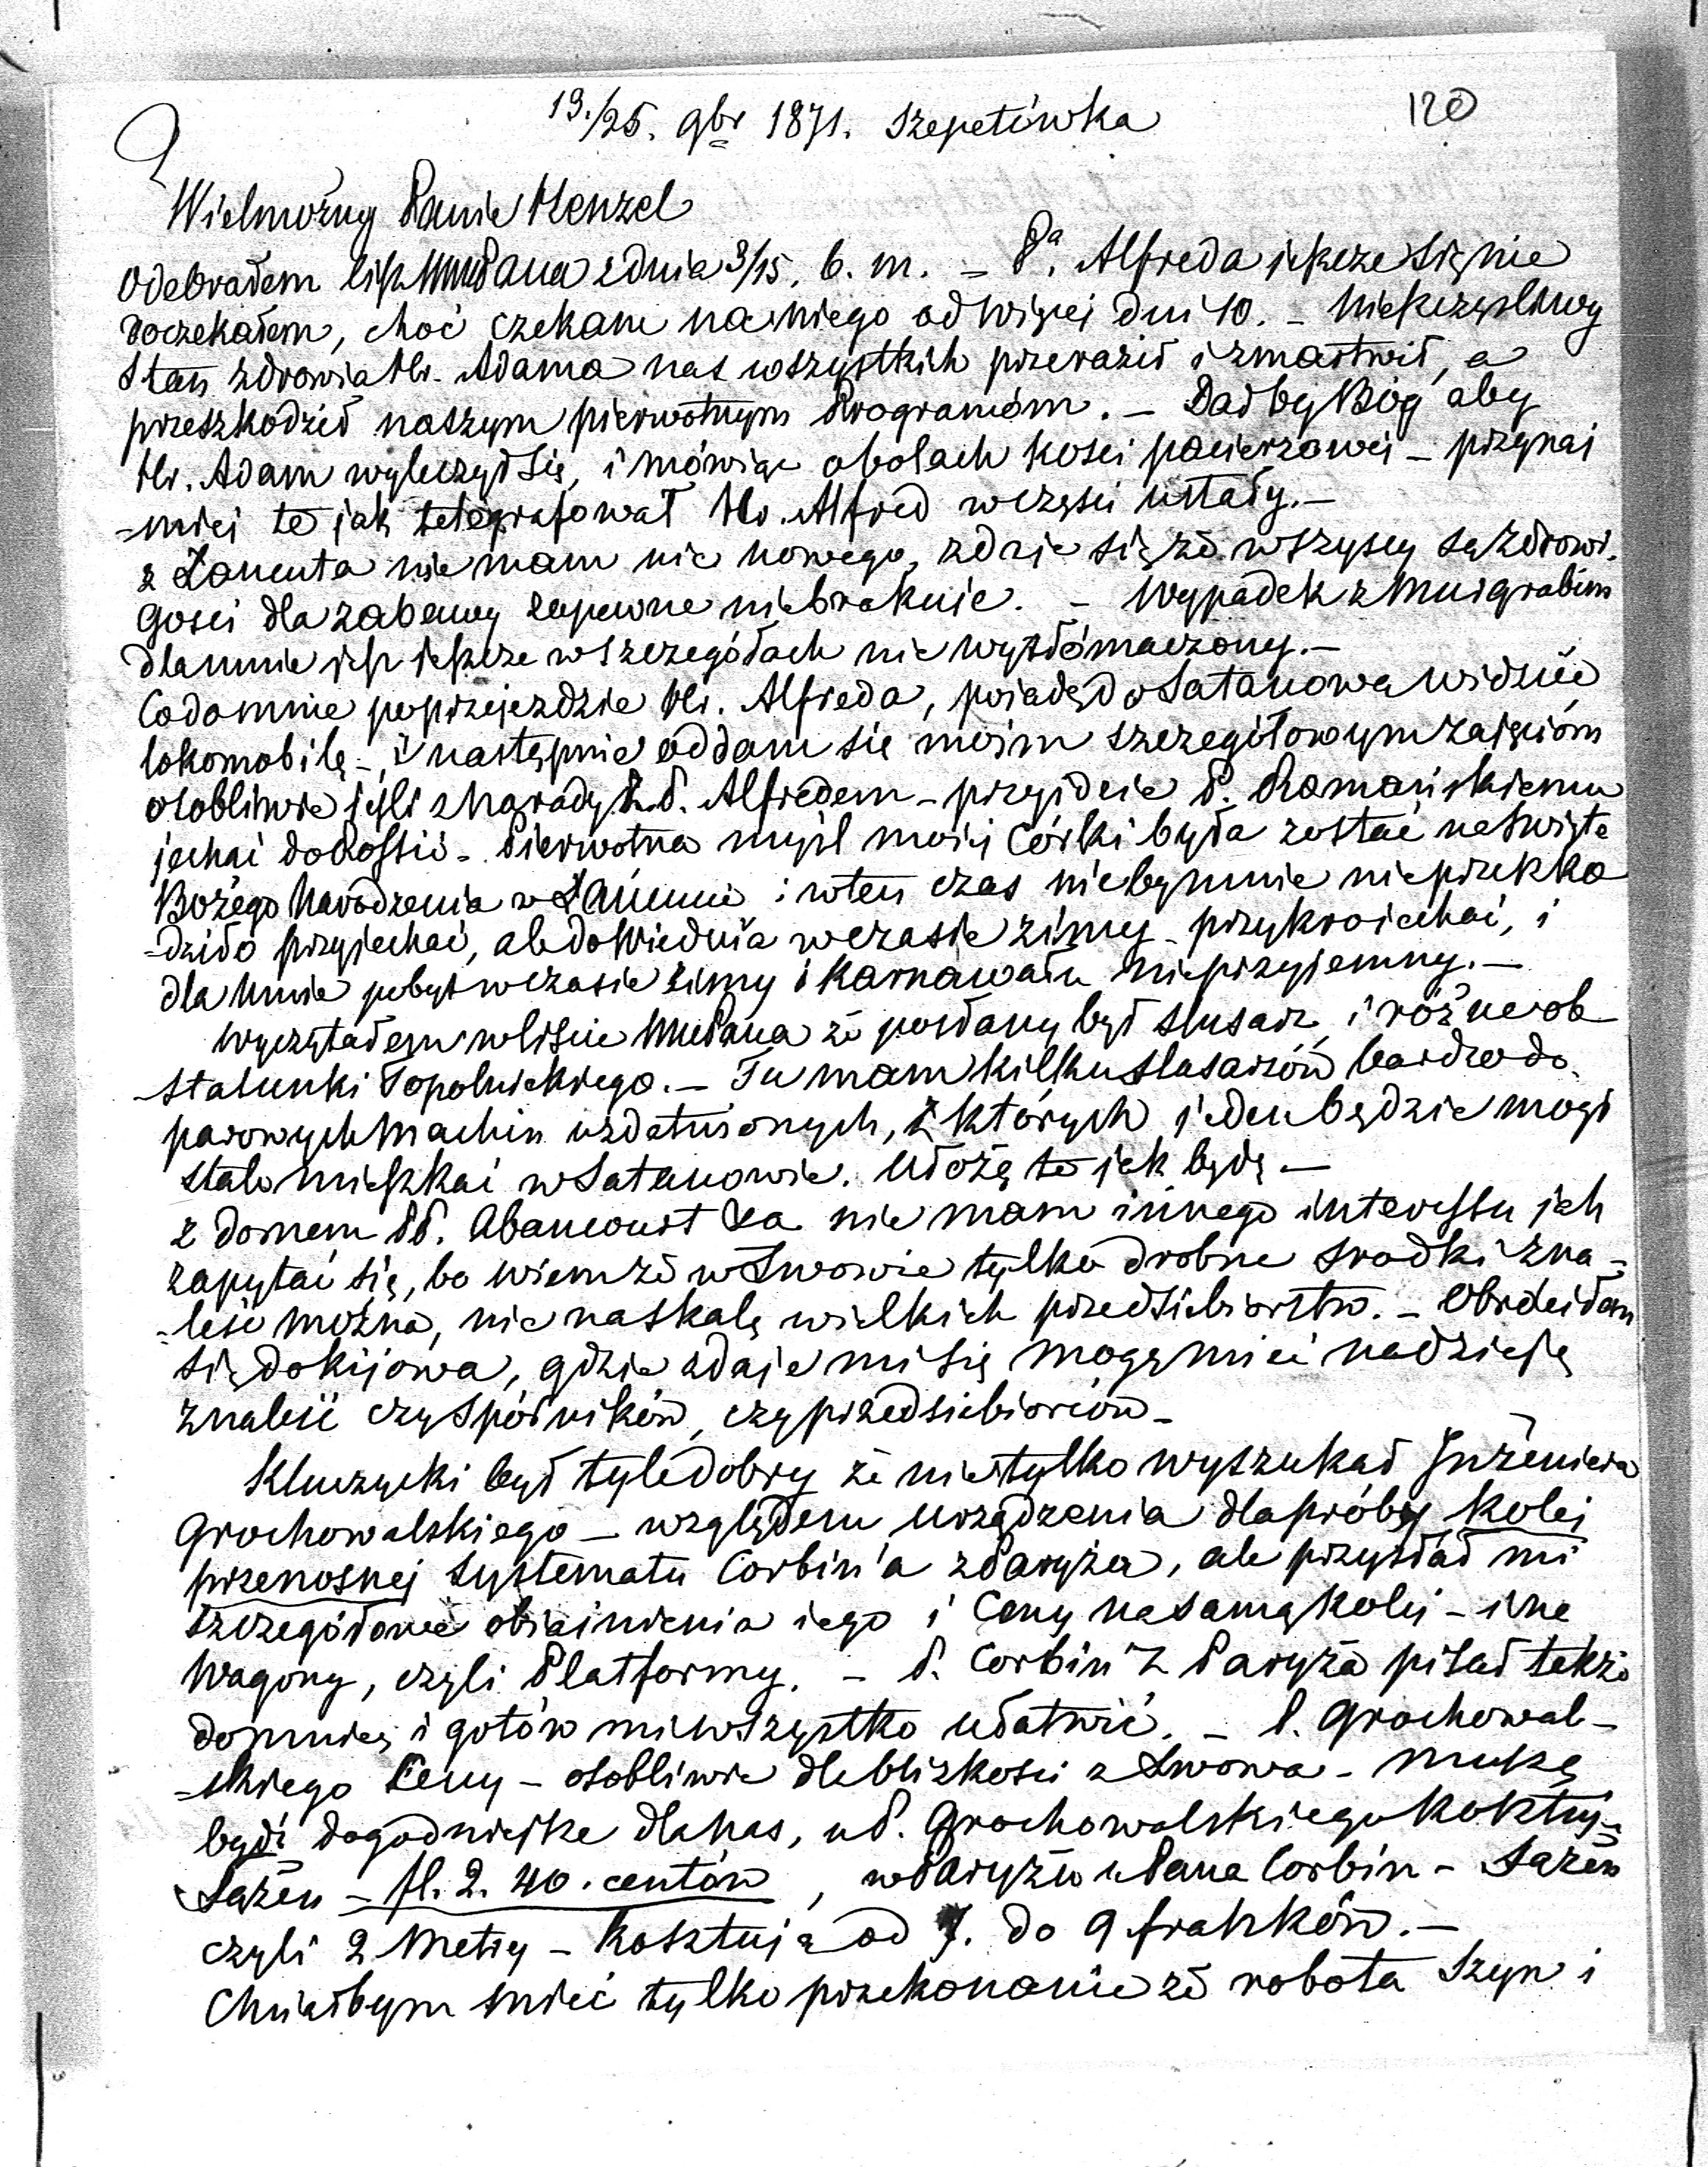 19./25. 9br 1871. Szepetówka
120
Wielmożny Panie Henzel
Odebrałem list WmPana z dnia 3/15. b. m. – Pa. Alfreda jeszcze się nie
doczekałem, choć czekam na niego od więcej dni 10. – Nieszczęśliwy
stan zdrowia Hr. Adama nas wszystkich przeraził i zmartwił, a
przeszkodził naszym pierwotnym Programóm. – Dał by Bóg aby
Hr. Adam wyleczył się, i mówiąc o bolach kosci pacierzowej – przynaj
=mniej te jak telegrafował Hr. Alfred w części ustały. –
z Łancuta nie mam nic nowego, zdaje się że wszyscy są zdrowi.
Gosci dla zabawy zapewne niebrakuje. – Wypadek z Murgrabim
dla mnie jest jeszcze w szczegółach nie wytłómaczony. –
Co do mnie po przejezdzie Hr. Alfreda, pojadę do Satanowa widzieć
lokomobilę –, i następnie oddam się moim szczegółowym zajęcióm
osobliwie jeśli z narady z P. Alfredem – przyjdzie P. Romańskiemu
jechać do Rossii – Pierwotna myśl mojej Córki była zostać na Swięta
Bożego Narodzenia w Łańcucie i w ten czas nie by mnie nie przeszko
=dziło przyjechać, ale do Wiednia w czasie zimy – przykro jechać, i
dla mnie pobyt w czasie zimy i Karnawału nieprzyjemny. –
Wyczytałem w liscie WmPana że posłany był slusarz, i różne ob
-stalunki Topolnickiego. – Tu mam kilku slusarzów bardzo do
parowych Machin uzdatnionych, z których jeden będzie mogł
stale mieszkać w Satanowie. Ułożę to jak będę –
z domem PP. Abancourt Ka nie mam innego interessu jak
zapytać się, bo wiem że w Lwowie tylko drobne srodki zna-
=leść można, nie na skalę wielkich przedsiebiorstw. – Obrócidem
się do Kijowa, gdzie zdaje mi się mogę mieć nadzieję
znaleść czy spólników, czy przedsiebiorców –
Kluczycki był tyle dobry że nie tylko wyszukał Inżeniera
Grochowalskiego – względem urządzenia dla próby kolei
przenosnej systematu Corbin'a z Paryża, ale przysłał mi
szczegółowe objaśnienia jego i Ceny na samą kolej – i na
Wagony, czyli Platformy. – P. Corbin z Paryża pisał także
do mnie, i gotów mi wszystko ułatwić. – P. Grochowal-
=skiego Ceny – osobliwie dla blizkosci z Lwowa – muszą
być dogodniejsze dla nas, u P. Grochowalskiego kosztuje
Sążeń – fl. 2. 40. centów, w Paryżu u Pana Corbin – Sążeń
czyli 2 Metry – kosztują od 7. do 9 franków. –
Chciałbym mieć tylko przekonanie że robota szyn i